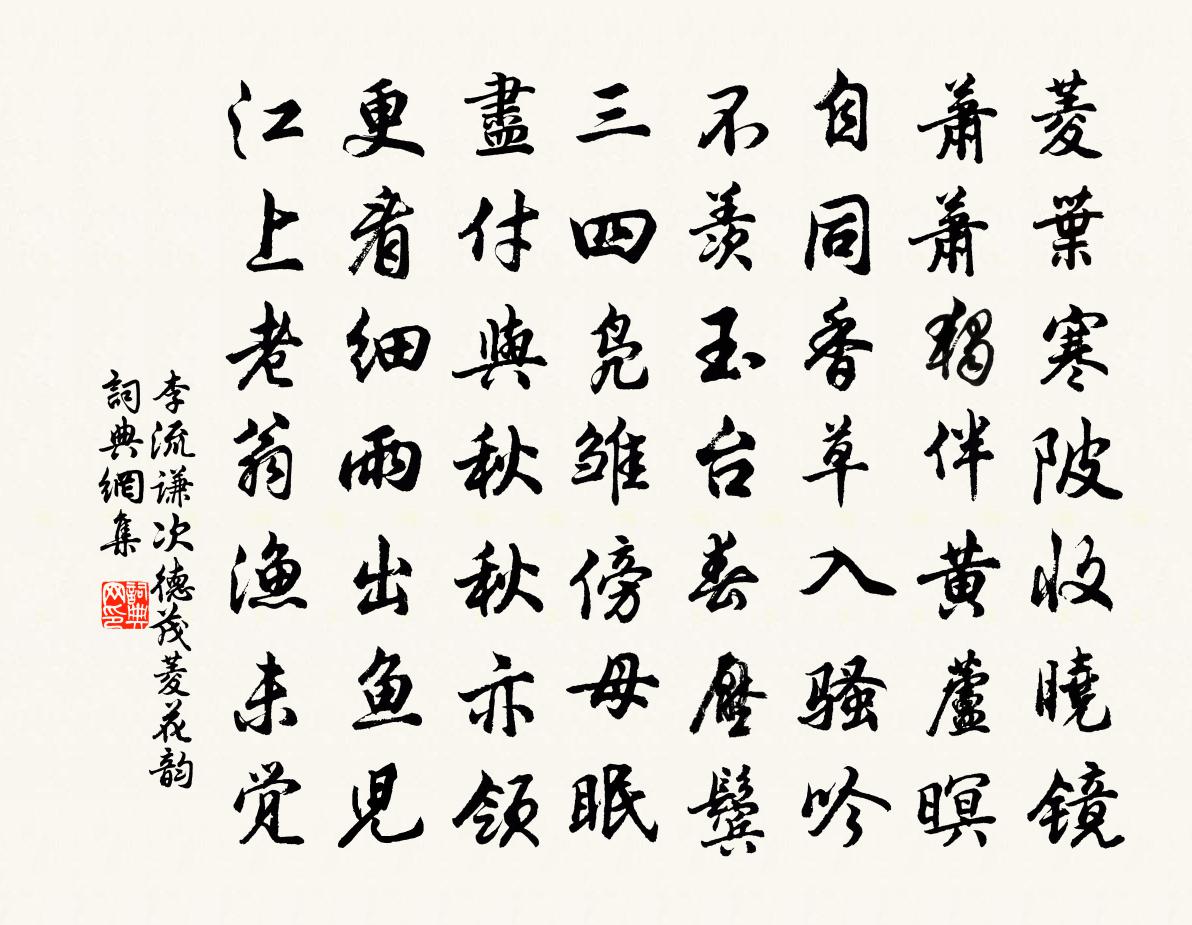 菱葉寒陂收曉鏡
蕭蕭獨伴黃蘆暝
自同香草入騷吟
不羨玉台春壓鬢
三四鳧雛傍母眠
盡付與秋秋亦領
更看細雨出魚兒
江上老翁漁未覺
李流謙次德茂菱花韵
詞典網集